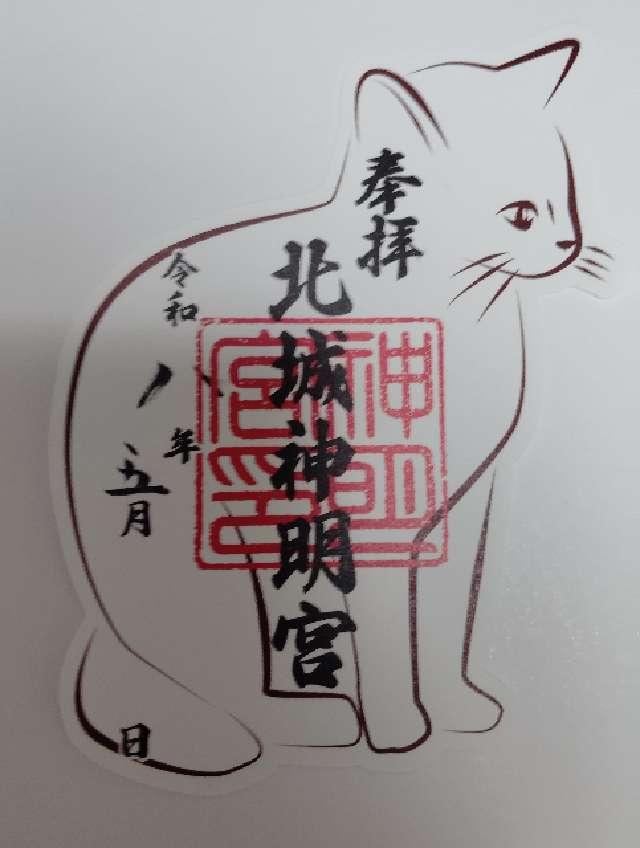 奉拝
北城神明宮
神明宮印
令和八年五月 日